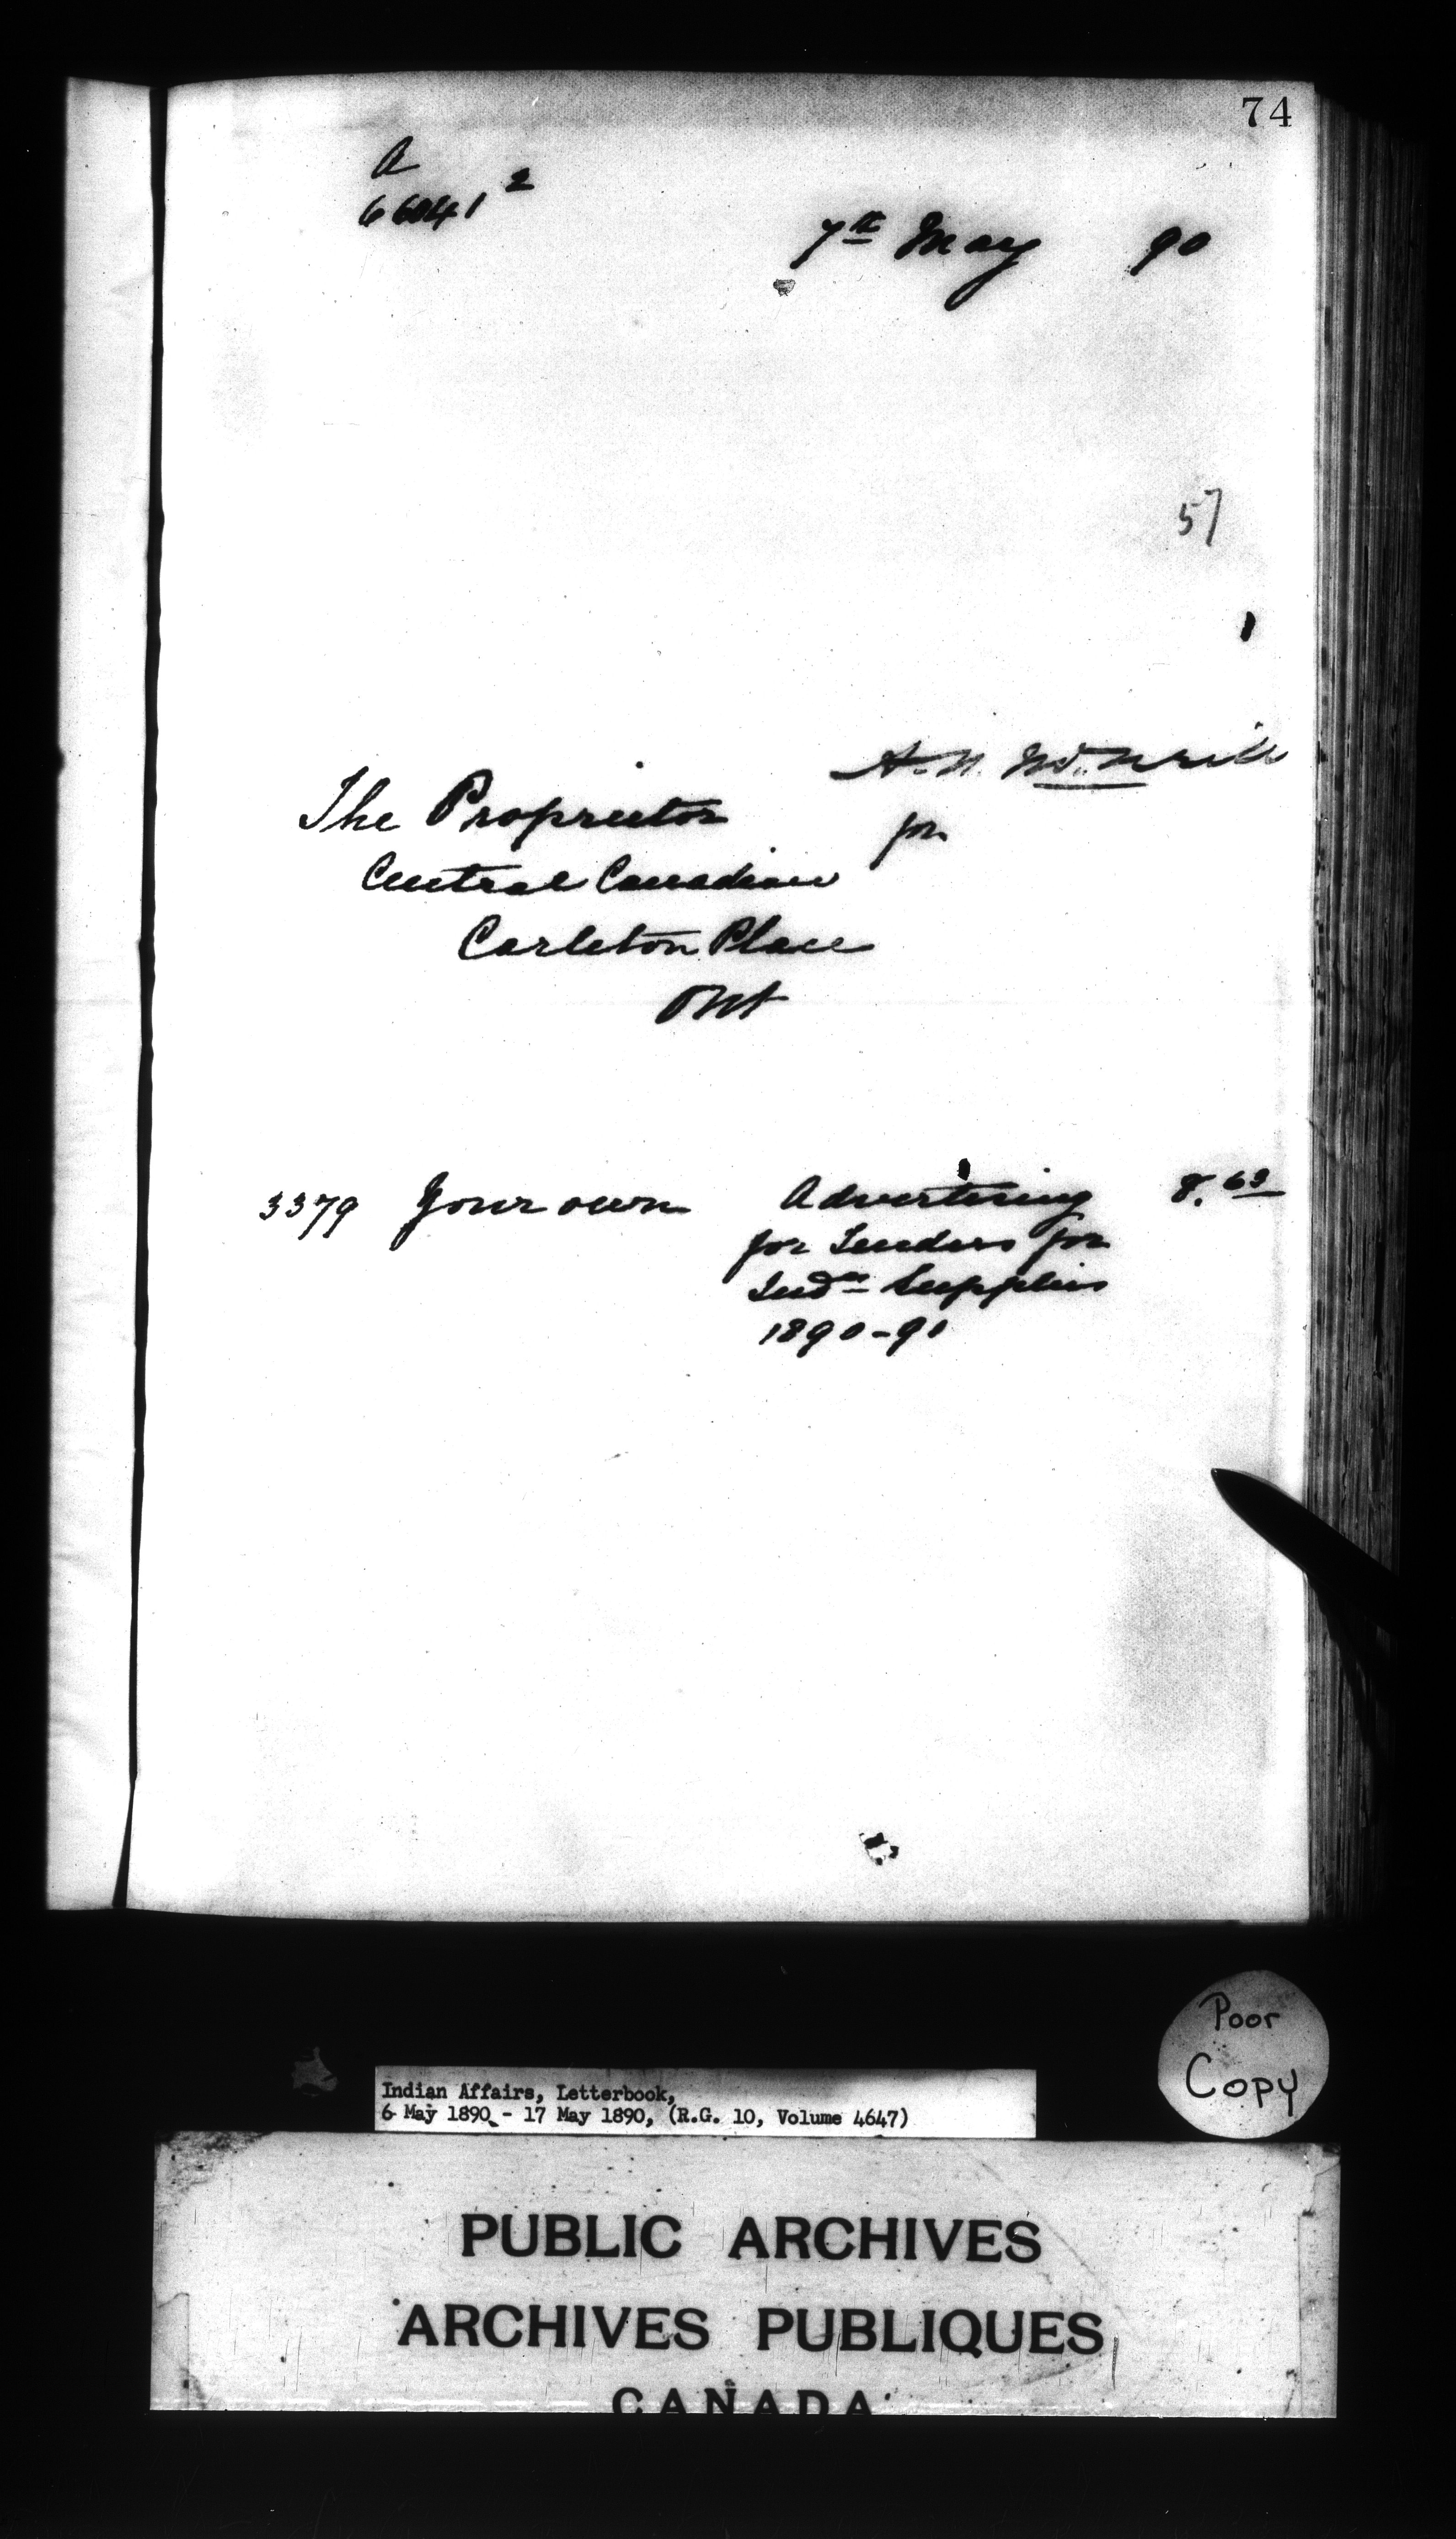 74
A
66041 2
7th May 90
57
A. N. McNeill
The Proprietor for
Central Canadian
Carleton Place
Ont
3379 Your own Advertising 8.63
for Tenders for
Indn Supplies
1890-91
Poor
Copy
Indian Affairs, Letterbook,
6 May 1890 - 17 May 1890, (R.G. 10, Volume 4647)
PUBLIC ARCHIVES
ARCHIVES PUBLIQUES
CANADA